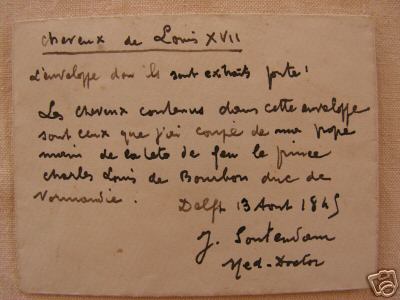 cheveux de Louis XVII
L'enveloppe dou ils sont extraits porte!
Les cheveux contenus dans cette enveloppe
sont ceux que j'ai coupé de ma propre
main de la tete de feu le prince
charles Louis de Bourbon duc de
Normandie.
Delft 13 Aout 1845
J. Soutendam
Med-Doctor